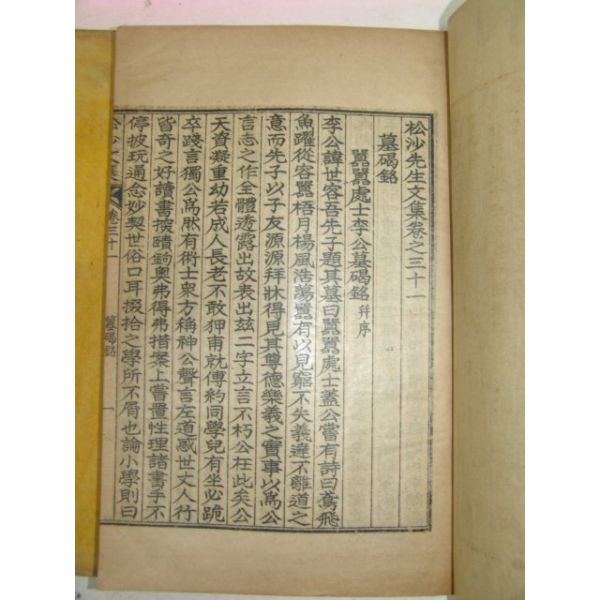 松沙先生文集卷之三十一
墓碣銘
囂囂處士李公墓碣銘 幷序
李公諱世容吾先子題其墓曰囂囂處士蓋公嘗有詩曰鳶飛
魚躍從容囂梧月楊風浩蕩囂有以見窮不失義達不離道之
意而先子以子友源源拜牀得見其尊德樂義之實事以爲公
言志之作全體透露出故表出玆二字立言不朽公在此矣公
天資凝重幼若成人長老不敢狎甫就傅約同學兒有坐必跪
卒踐言獨公爲肰有術士衆方稱神公聲言左道惑世丈人行
皆奇之好讀書探賾鉤奧弗得弗措案上嘗置性理諸書手不
停披玩通念妙契世俗口耳掇拾之學所不屑也論小學則曰
松沙文集
卷三十
墓碣銘
一